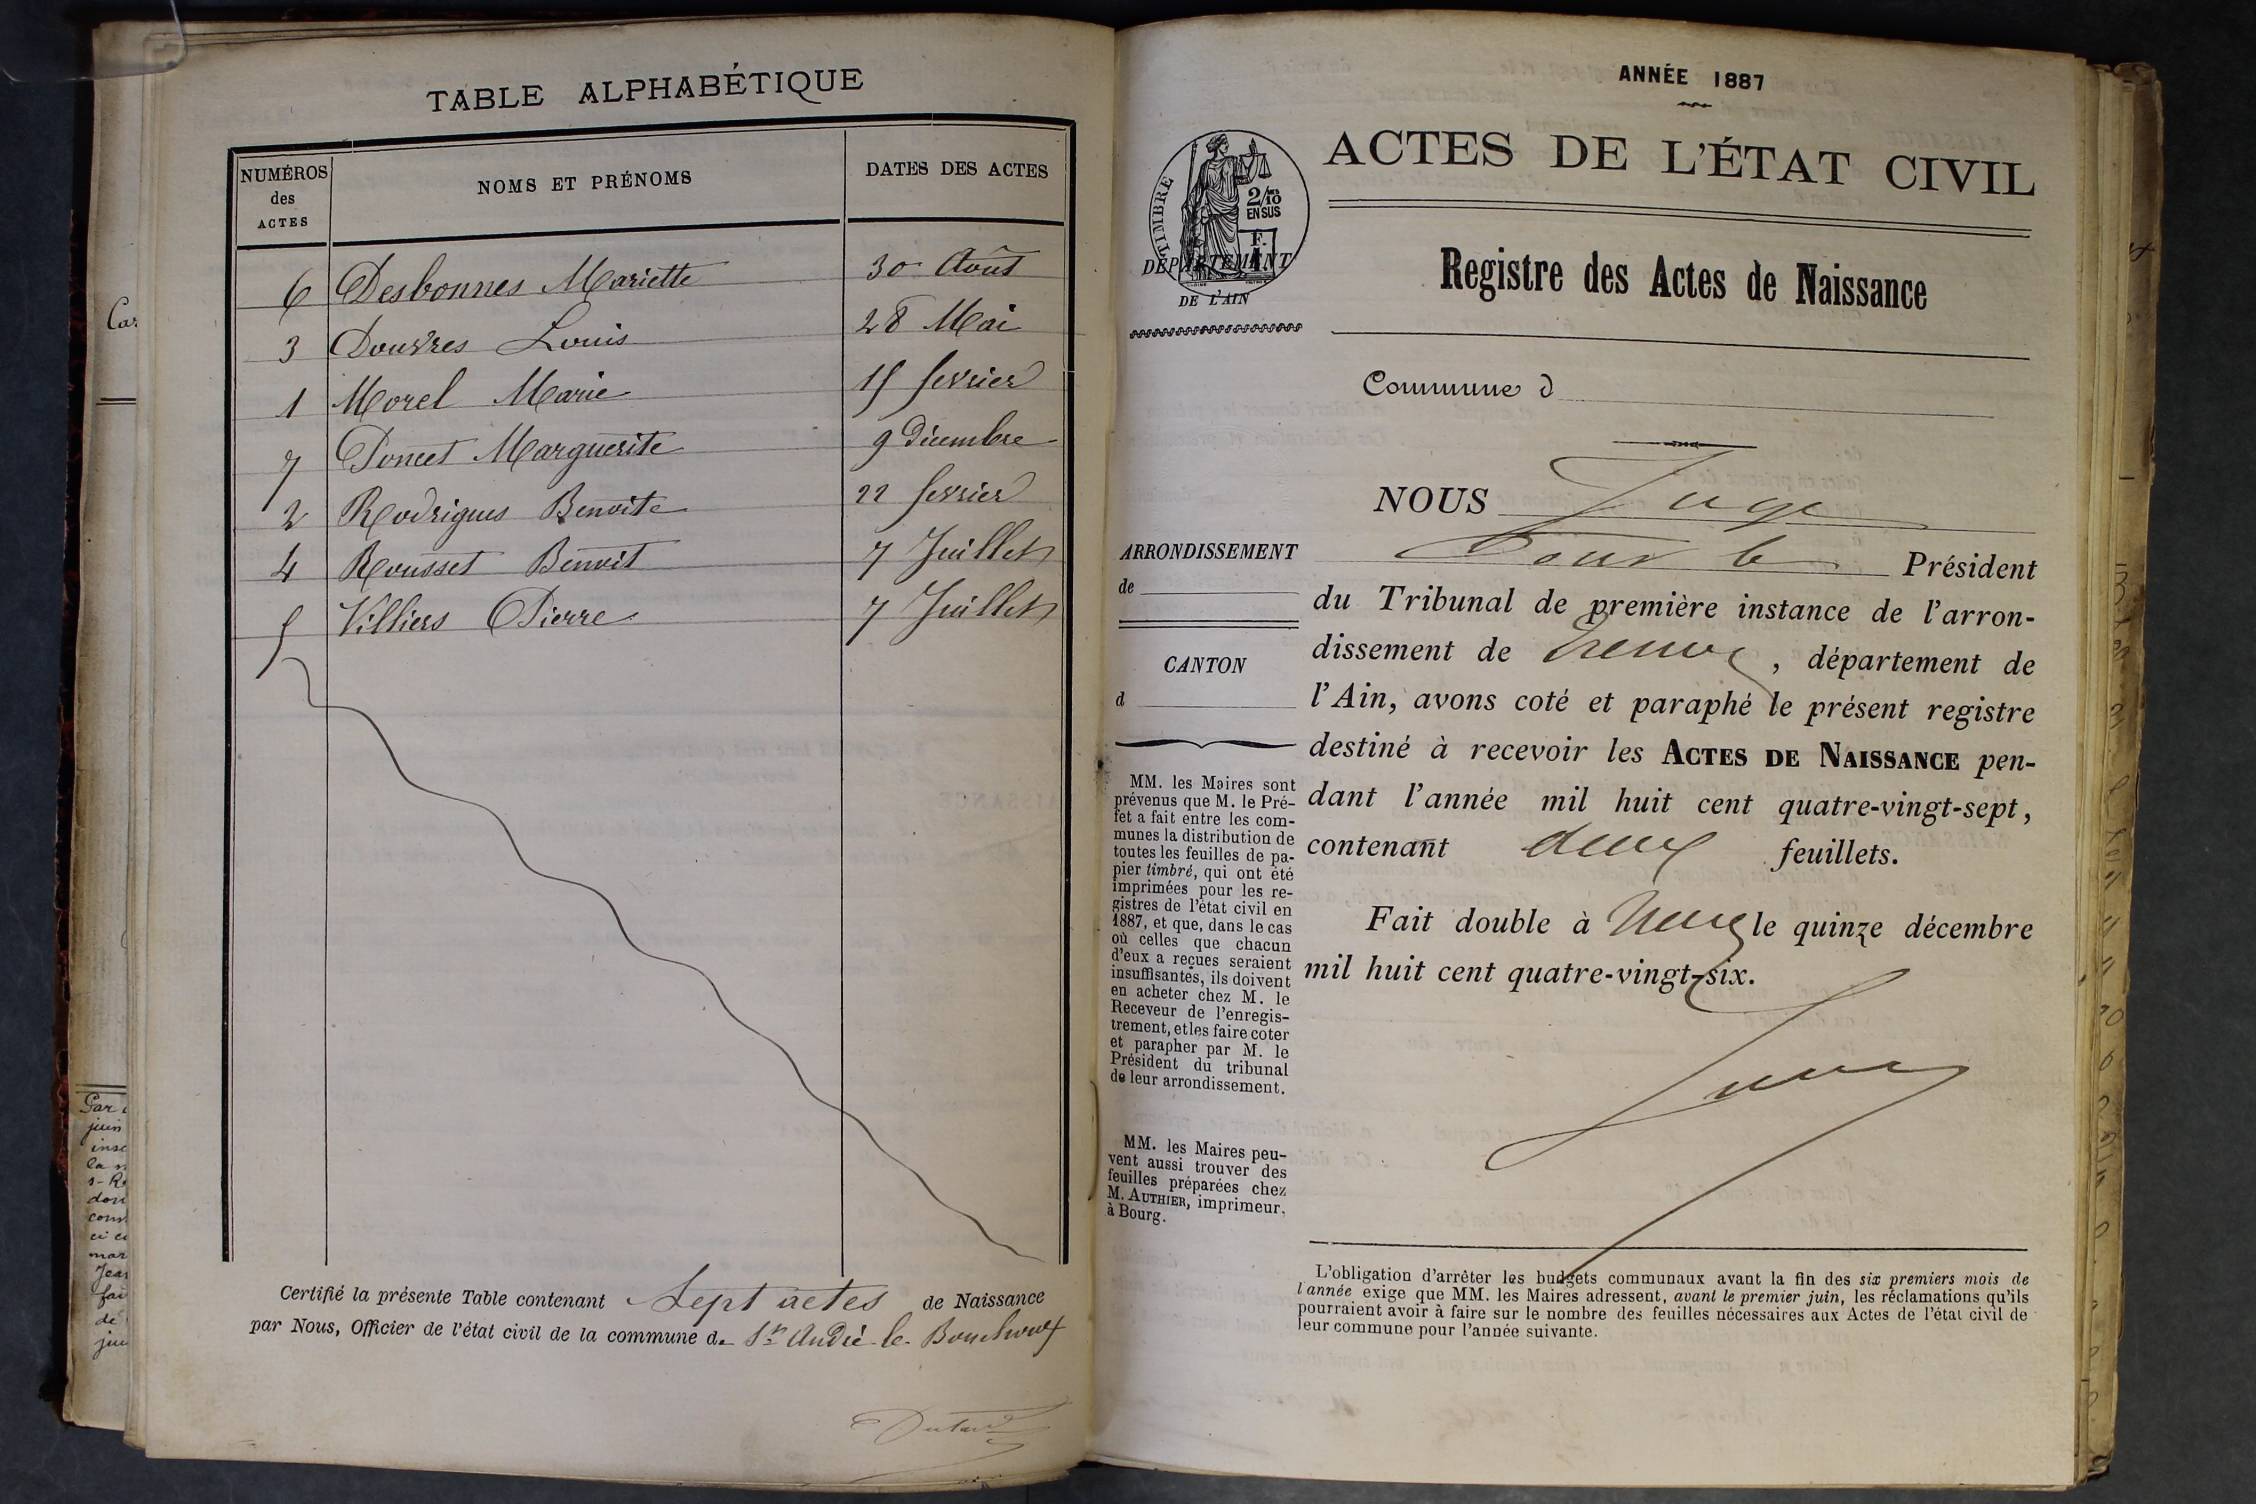 TABLE ALPHABÉTIQUE
NUMÉROS des ACTES NOMS ET PRÉNOMS DATES DES ACTES
6 Desbonnes Mariette 30 Août
3 Douvres Louis 28 Mai
1 Morel Marie 15 fevrier
7 Poncet Marguerite 9 Décembre
2 Rodrigues Benoite 22 fevrier
4 Rousset Benoit 7 Juillet
5 Villiers Pierre 7 Juillet
Certifié la présente Table contenant Sept actes de Naissance
par Nous, Officier de l'état civil de la commune de St André le Bouchoux
ANNÉE 1887
ACTES DE L'ÉTAT CIVIL
TIMBRE
2/10 EN SUS
F.
DÉPARTEMENT
DE L'AIN
Registre des Actes de Naissance
Commune d
NOUS Juge
Pour le Président
du Tribunal de première instance de l'arron-
dissement de Trevoux, département de
l'Ain, avons coté et paraphé le présent registre
destiné à recevoir les ACTES DE NAISSANCE pen-
dant l'année mil huit cent quatre-vingt-sept,
contenant deux feuillets.
Fait double à le quinze décembre
mil huit cent quatre-vingt-six.
ARRONDISSEMENT
de
CANTON
d
MM. les Maires sont
prévenus que M. le Pré-
fet a fait entre les com-
munes la distribution de
toutes les feuilles de pa-
pier timbré, qui ont été
imprimées pour les re-
gistres de l'état civil en
1887, et que, dans le cas
où celles que chacun
d'eux a reçues seraient
insuffisantes, ils doivent
en acheter chez M. le
Receveur de l'enregis-
trement, et les faire coter
et parapher par M. le
Président du tribunal
de leur arrondissement.
MM. les Maires peu-
vent aussi trouver des
feuilles préparées chez
M. AUTHIER, imprimeur,
à Bourg.
L'obligation d'arrêter les budgets communaux avant la fin des six premiers mois de
l'année exige que MM. les Maires adressent, avant le premier juin, les réclamations qu'ils
pourraient avoir à faire sur le nombre des feuilles nécessaires aux Actes de l'état civil de
leur commune pour l'année suivante.